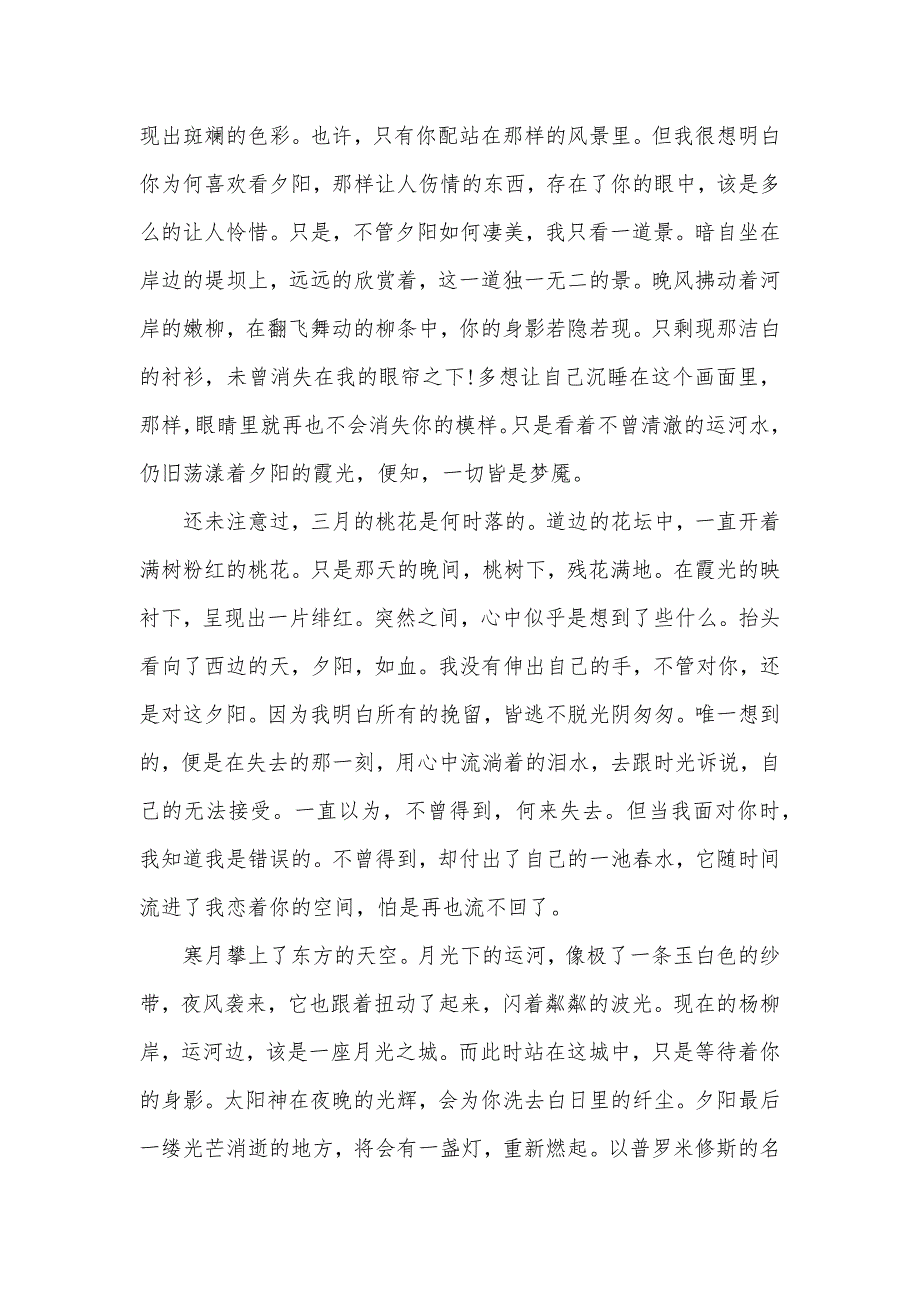 现出斑斓的色彩。也许，只有你配站在那样的风景里。但我很想明白
你为何喜欢看夕阳，那样让人伤情的东西，存在了你的眼中，该是多
么的让人怜惜。只是，不管夕阳如何凄美，我只看一道景。暗自坐在
岸边的堤坝上，远远的欣赏着，这一道独一无二的景。晚风拂动着河
岸的嫩柳，在翻飞舞动的柳条中，你的身影若隐若现。只剩现那洁白
的衬衫，未曾消失在我的眼帘之下!多想让自己沉睡在这个画面里，
那样，眼睛里就再也不会消失你的模样。只是看着不曾清澈的运河水，
仍旧荡漾着夕阳的霞光，便知，一切皆是梦魇。
还未注意过，三月的桃花是何时落的。道边的花坛中，一直开着
满树粉红的桃花。只是那天的晚间，桃树下，残花满地。在霞光的映
衬下，呈现出一片绯红。突然之间，心中似乎是想到了些什么。抬头
看向了西边的天，夕阳，如血。我没有伸出自己的手，不管对你，还
是对这夕阳。因为我明白所有的挽留，皆逃不脱光阴匆匆。唯一想到
的，便是在失去的那一刻，用心中流淌着的泪水，去跟时光诉说，自
己的无法接受。一直以为，不曾得到，何来失去。但当我面对你时，
我知道我是错误的。不曾得到，却付出了自己的一池春水，它随时间
流进了我恋着你的空间，怕是再也流不回了。
寒月攀上了东方的天空。月光下的运河，像极了一条玉白色的纱
带，夜风袭来，它也跟着扭动了起来，闪着粼粼的波光。现在的杨柳
岸，运河边，该是一座月光之城。而此时站在这城中，只是等待着你
的身影。太阳神在夜晚的光辉，会为你洗去白日里的纤尘。夕阳最后
一缕光芒消逝的地方，将会有一盏灯，重新燃起。以普罗米修斯的名